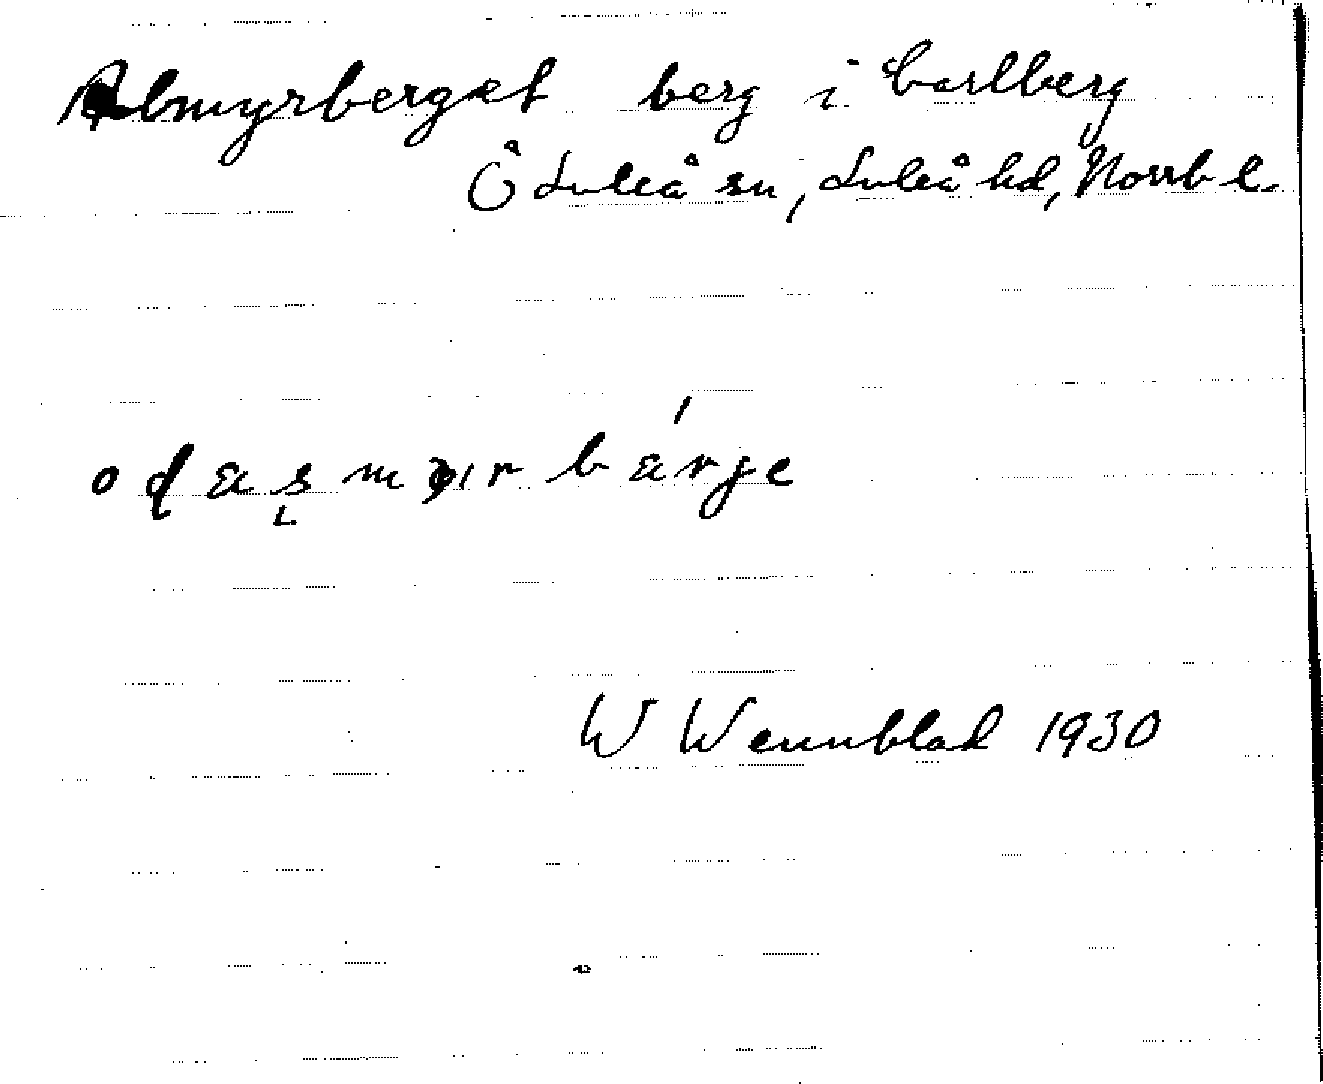 Almyrberget berg i Carlberg
Ö Luleå sn, Luleå hd, Norrb l.
W Wennblad 1930